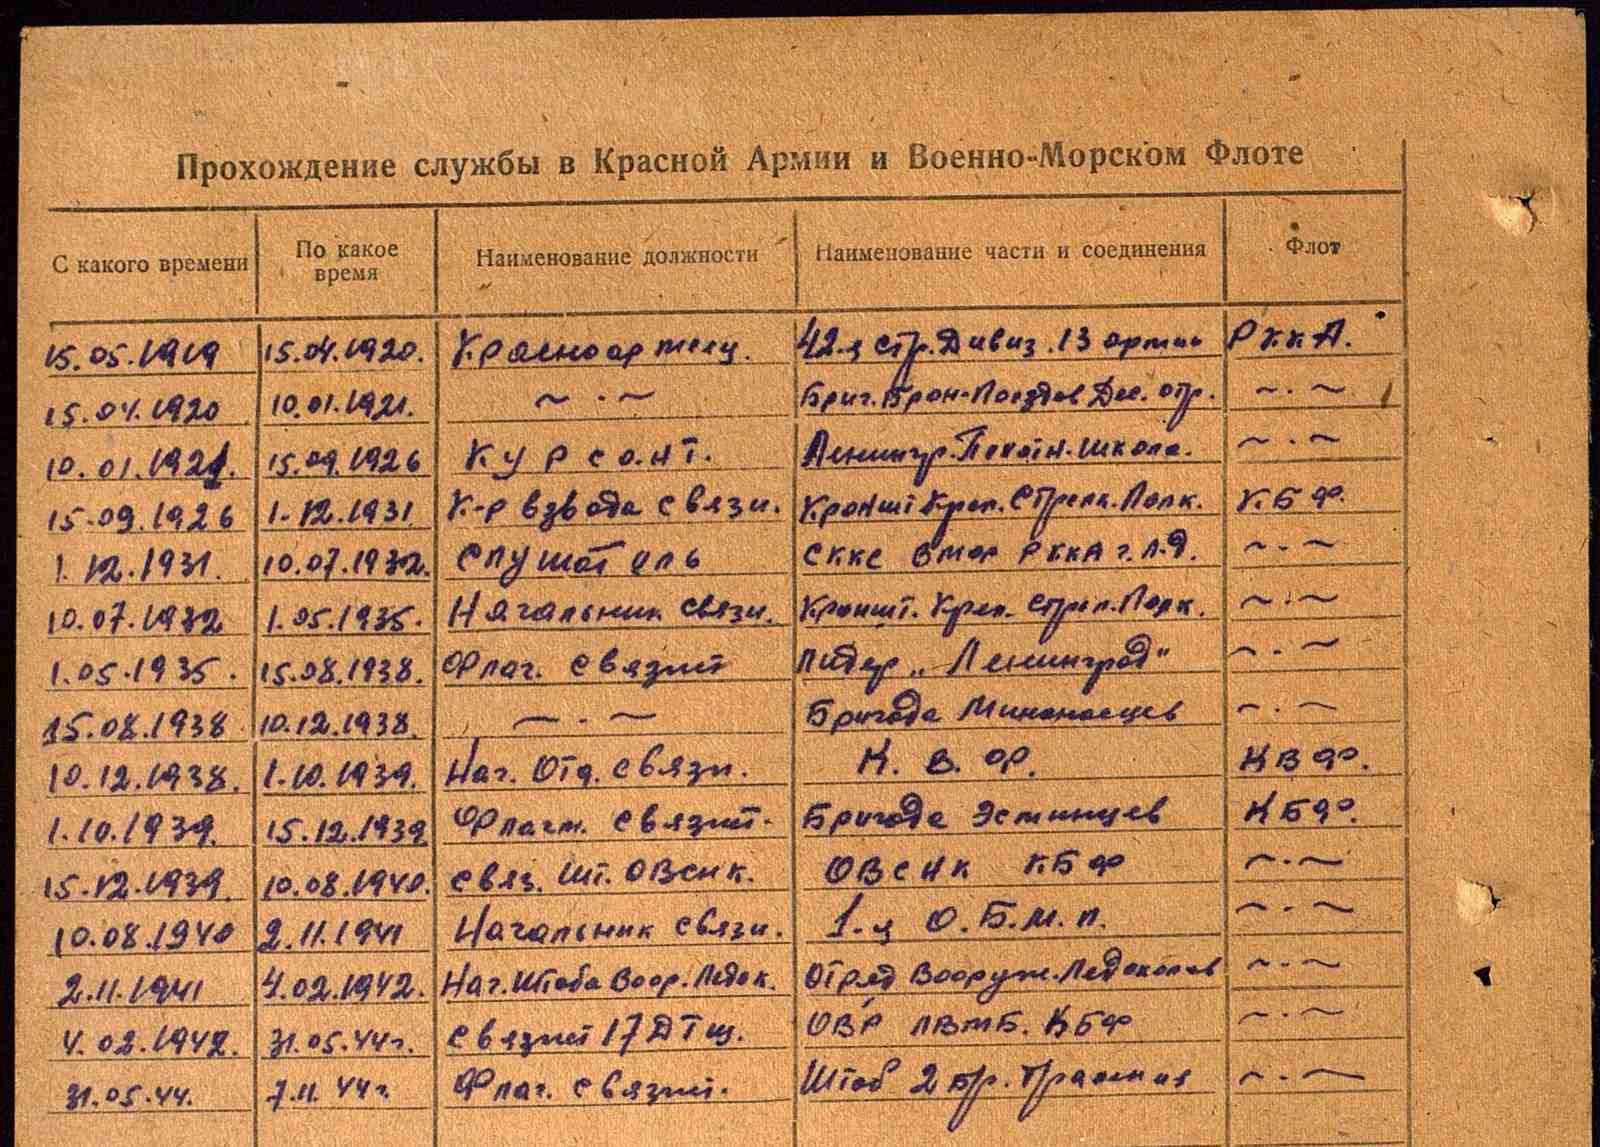 Прохождение службы в Красной Армии и Военно-Морском Флоте
С какого времени По какое время Наименование должности Наименование части и соединения Флот
15.05.1919 15.04.1920. Красноармеец. 42-я Стр. Дивиз. 13 армии РККА.
15.04.1920 10.01.1921. ~·~ Бриг. Брон-Поездов Дес. отр. ~·~
10.01.1921. 15.09.1926 Курсант. Ленингр. Пехотн. Школа. ~·~
15.09.1926 1.12.1931 К-р взвода связи. Кроншт Креп. Стрелк. Полк. КБФ.
1.12.1931. 10.07.1932. Слушатель СККС ВМОР РККА г. Л-д. ~·~
10.07.1932 1.05.1935. Начальник связи. Кроншт. Креп. Стрел. Полк. ~·~
1.05.1935. 15.08.1938. Флаг. Связист Лидер „Ленинград" ~·~
15.08.1938 10.12.1938. ~·~ Бригада Миноносцев ~·~
10.12.1938. 1.10.1939. Нач. Отд. Связи. К. В. Ф. КВФ.
1.10.1939. 15.12.1939. Флагм. Связист. Бригада Эсминцев КБФ.
15.12.1939. 10.08.1940. Связ. Шт. ОВСНК. ОВСНК КБФ ~·~
10.08.1940 2.11.1941 Начальник Связи. 1-я О.Б.М.П. ~·~
2.11.1941 4.02.1942. Нач. Штаба Воор. Ледок. Отряд Вооруж. Ледоколов ~·~
4.02.1942. 31.05.44г. Связист 17 ДТщ. ОВР ЛВМБ. КБФ ~·~
31.05.44. 7.11.44г. Флаг. Связист. Штаб 2 бр. Траления ~·~